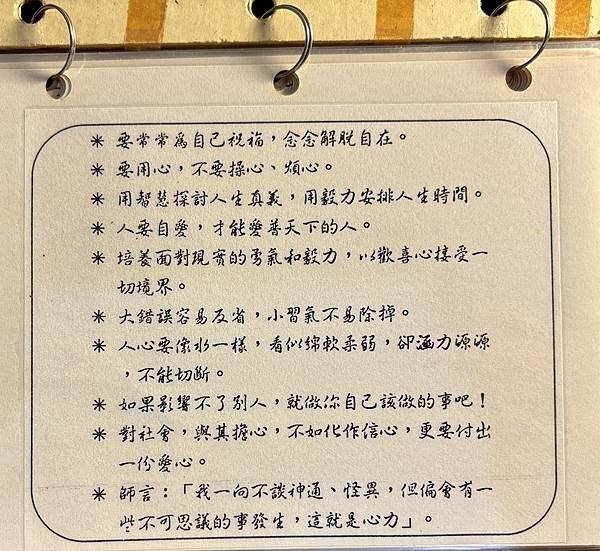 ＊ 要常常為自己祝福，念念解脫自在。
＊ 要用心，不要操心、煩心。
＊ 用智慧探討人生真義，用毅力安排人生時間。
＊ 人要自愛，才能愛普天下的人。
＊ 培養面對現實的勇氣和毅力，以歡喜心接受一
切境界。
＊ 大錯誤容易反省，小習氣不易除掉。
＊ 人心要像水一樣，看似綿軟柔弱，卻涵力源源
，不能切斷。
＊ 如果影響不了別人，就做你自己該做的事吧！
＊ 對社會，與其擔心，不如化作信心，更要付出
一份愛心。
＊ 師言：「我一向不談神通、怪異，但偏會有一
些不可思議的事發生，這就是心力」。